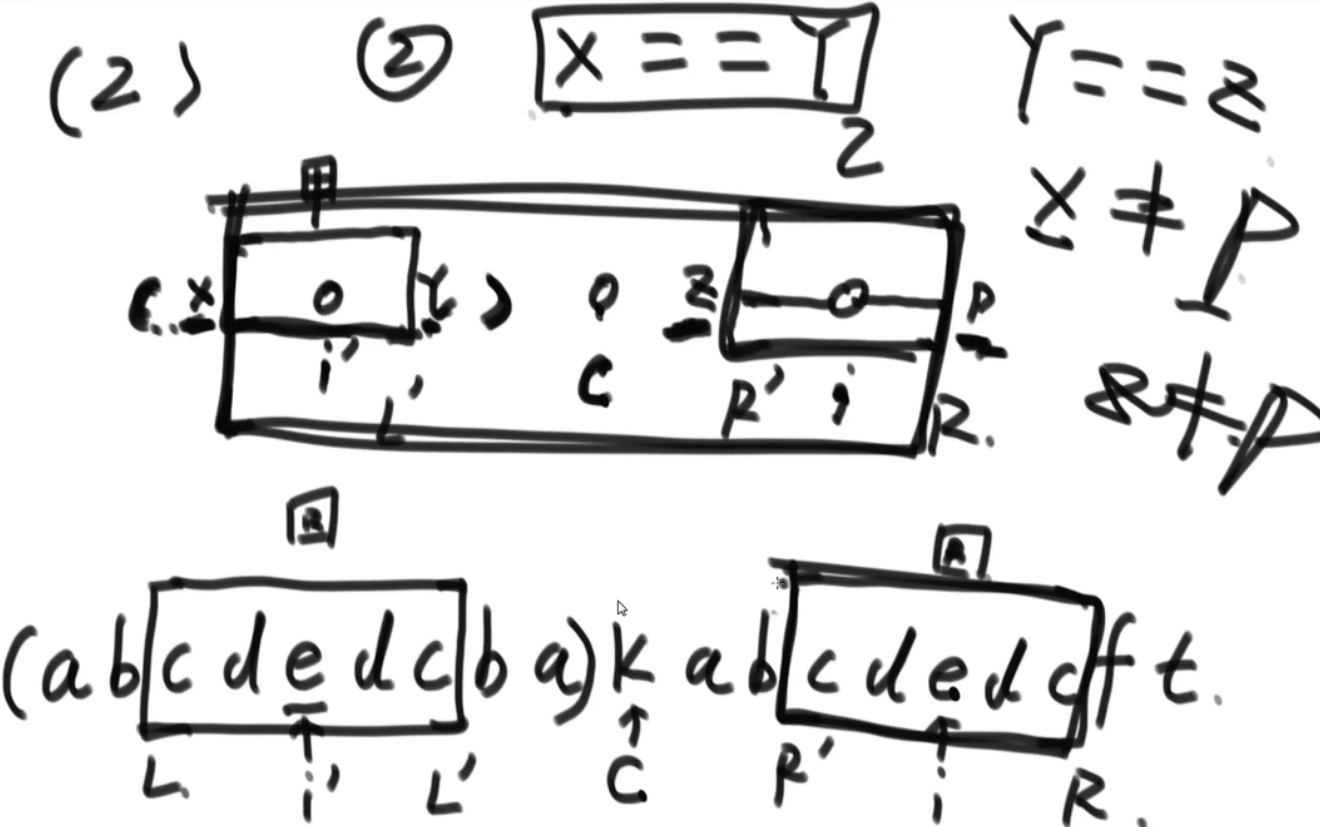 (2) ② X == Y Y == Z
Z
X ≠ P
甲
(X Y) Z P
i' C R' i
L' R.
Z ≠ P
(abcdedcba)kabcdedcft.
L i' L' C R' i R